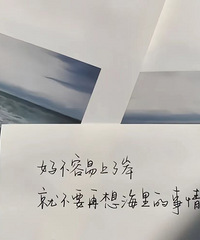 好不容易上了岸
就不要再想海里的事情